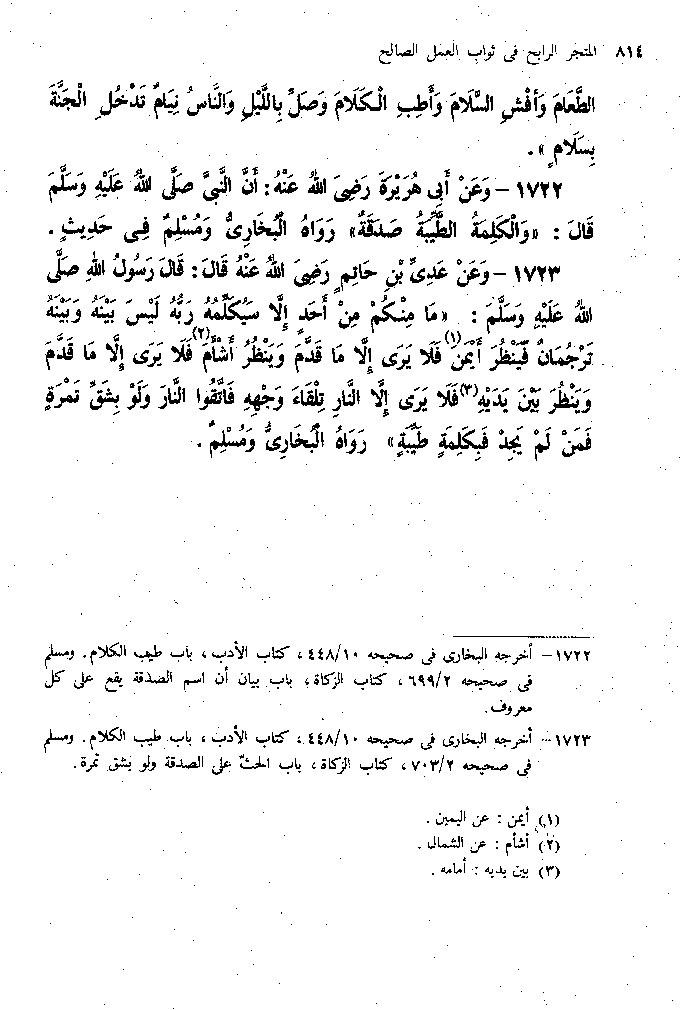 ٨١٤ المتجر الرابح فى ثواب العمل الصالح
الطَّعَامَ وَأَفْشِ السَّلَامَ وَأَطِبِ الْكَلَامَ وَصَلِّ بِاللَّيْلِ وَالنَّاسُ نِيَامٌ تَدْخُلِ الْجَنَّةَ
بِسَلَامٍ » .
١٧٢٢ – وَعَنْ أَبِي هُرَيْرَةَ رَضِىَ اللهُ عَنْهُ : أَنَّ النَّبِىَّ صَلَّى اللهُ عَلَيْهِ وَسَلَّمَ
قَالَ : « وَالْكَلِمَةُ الطَّيِّبَةُ صَدَقَةٌ » رَوَاهُ الْبُخَارِىُّ وَمُسْلِمٌ فِى حَدِيثٍ .
١٧٢٣ – وَعَنْ عَدِىِّ بْنِ حَاتِمٍ رَضِىَ اللهُ عَنْهُ قَالَ : قَالَ رَسُولُ اللهِ صَلَّى
اللهُ عَلَيْهِ وَسَلَّمَ : « مَا مِنْكُمْ مِنْ أَحَدٍ إِلَّا سَيُكَلِّمُهُ رَبُّهُ لَيْسَ بَيْنَهُ وَبَيْنَهُ
تَرْجُمَانٌ فَيَنْظُرَ أَيْمَنَ (١) فَلَا يَرَى إِلَّا مَا قَدَّمَ وَيَنْظُرُ أَشْأَمَ (٢) فَلَا يَرَى إِلَّا مَا قَدَّمَ
وَيَنْظُرَ بَيْنَ يَدَيْهِ (٣) فَلَا يَرَى إِلَّا النَّارِ تِلْقَاءَ وَجْهِهِ فَاتَّقُوا النَّارَ وَلَوْ بِشَقِّ تَمْرَةٍ
فَمَنْ لَمْ يَجِدْ فَبِكَلِمَةٍ طَيِّبَةٍ » رَوَاهُ الْبُخَارِىُّ وَمُسْلِمٌ .
١٧٢٢ – أخرجه البخارى فى صحيحه ٤٤٨/١٠ ، كتاب الأدب ، باب طيب الكلام . ومسلم
فى صحيحه ٦٩٩/٢ ، كتاب الزكاة ، باب بيان أن اسم الصدقة يقع على كل
معروف .
١٧٢٣ – أخرجه البخارى فى صحيحه ٤٤٨/١٠ ، كتاب الأدب ، باب طيب الكلام . ومسلم
فى صحيحه ٧٠٣/٢ ، كتاب الزكاة ، باب الحثّ على الصدقة ولو بشق تمرة .
(١) أيمن : عن اليمين .
(٢) أشأم : عن الشمال .
(٣) بين يديه : أمامه .